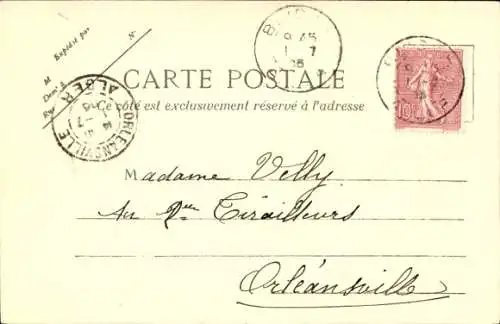 Expédié par
N°
M
Rue
CARTE POSTALE
Ce côté est exclusivement réservé à l'adresse
9 45
1 7
05
ORLÉANSVILLE
ALGER
10
Madame Velly
Au Tirailleurs
Orléansville